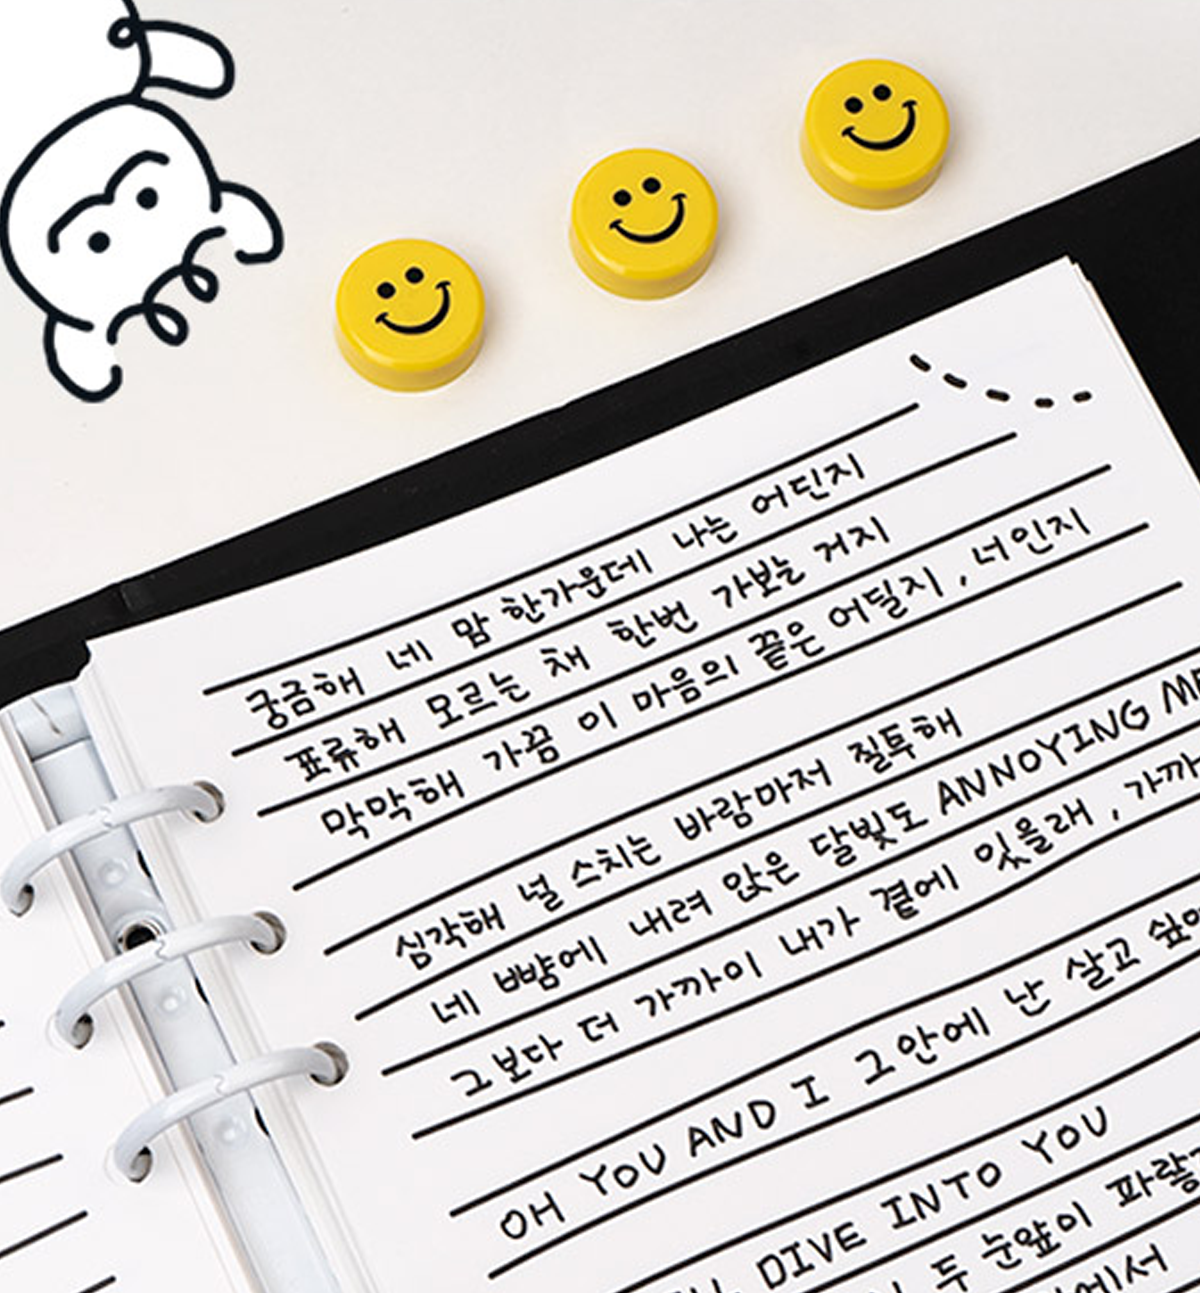 궁금해 네 맘 한가운데 나는 어딘지
표류해 모르는 채 한번 가보는 거지
막막해 가끔 이 마음의 끝은 어딜지, 너인지
심각해 널 스치는 바람마저 질투해
네 뺨에 내려 앉은 달빛도 ANNOYING ME
그보다 더 가까이 내가 곁에 있을래, 가까
OH YOU AND I 그 안에 난 살고 싶
DIVE INTO YOU
두 눈앞이
에서